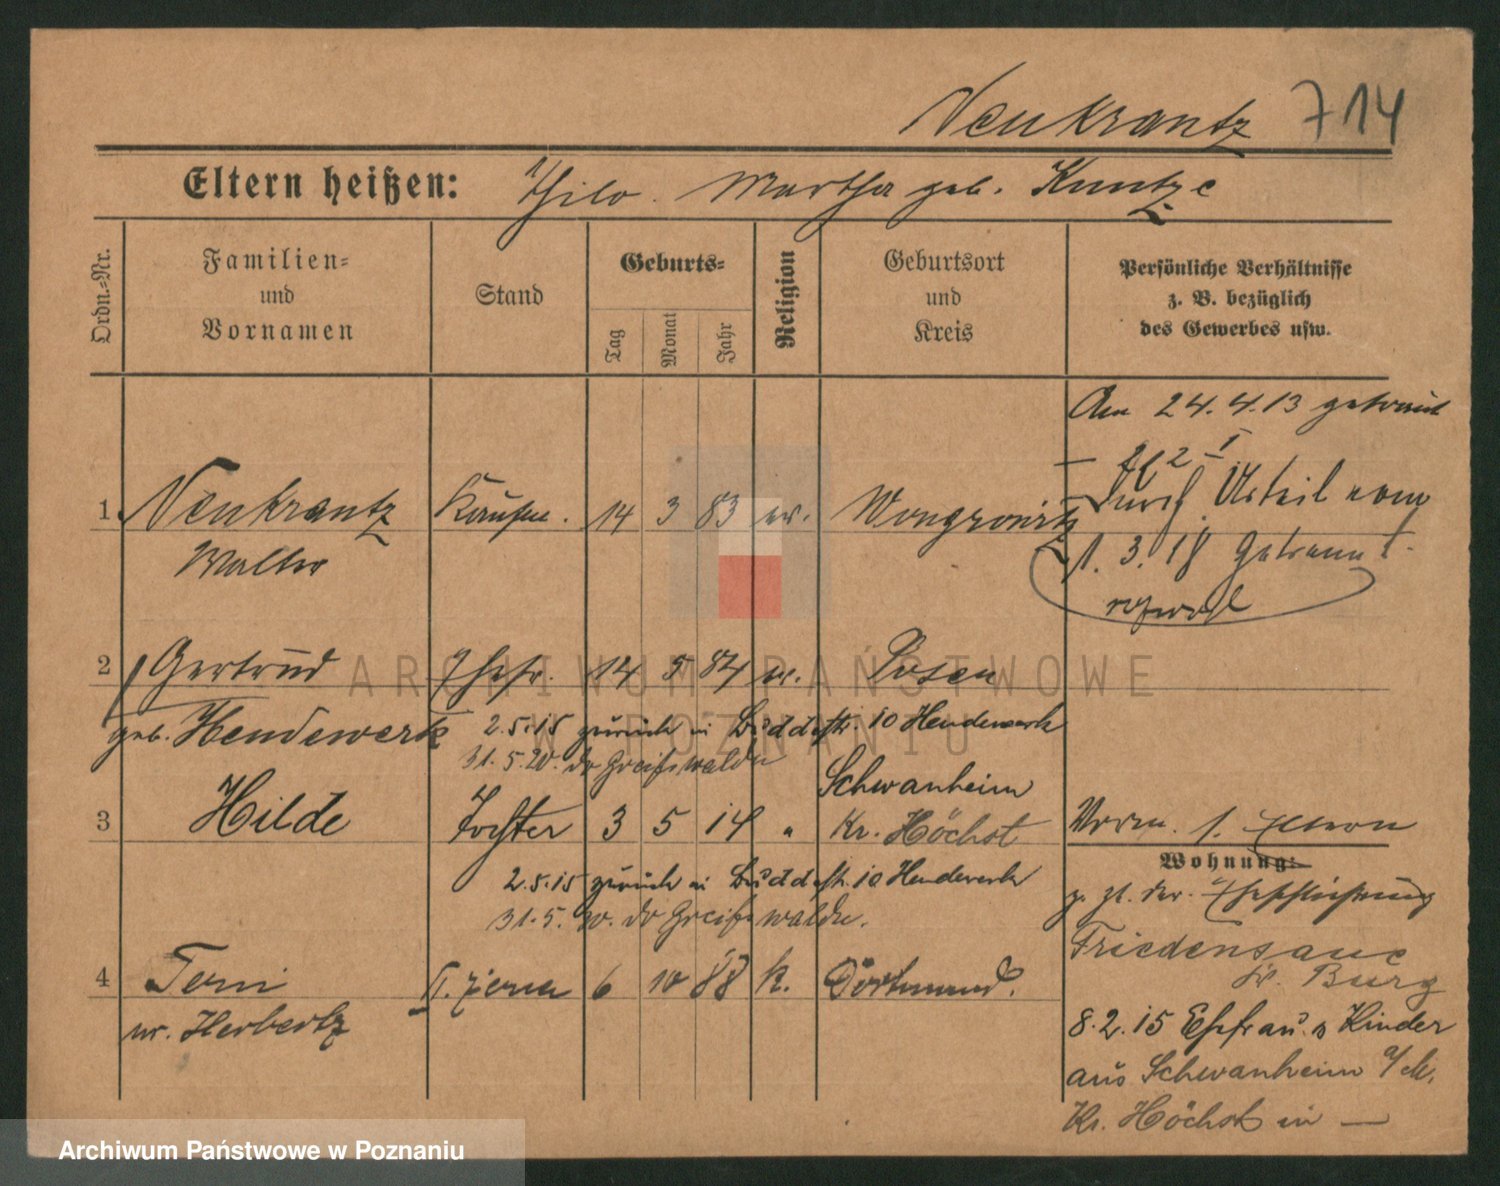 Neukrantz 714
Eltern heißen: Thilo. Martha geb. Kuntze
Ordn.-Nr.
Familien-
und
Vornamen
Stand
Geburts-
Tag
Monat
Jahr
Religion
Geburtsort
und
Kreis
Persönliche Verhältnisse
z. B. bezüglich
des Gewerbes usw.
Am 24.4.13 getraut
1. Neukrantz Kaufm. 14 3 83 ev. Wongrowitz
Walter
Durch Urteil vom
1. 3. 18 getrennt
2 Gertrud Ehefr. 14 5 84 ev. Posen
geb. Hendewerk
2.5.15 zurück in Buddestr. 10 Hendewerk
31.5.20. do Greifswald
3 Hilde Tochter 3 5 14 " Schwanheim
Kr. Höchst
2.5.15 zurück in Buddestr. 10 Hendewerk
31.5. do Greifswald
Wohnung:
z. Zt. der Eheschließung
Friedenau
4 Terni II. 6 10 88 k. Dortmund.
Herbertz
8.2.15 Ehefrau u Kinder
aus Schwanheim a/M.
Kr. Höchst in —
ARCHIWUM PAŃSTWOWE
W POZNANIU
Archiwum Państwowe w Poznaniu